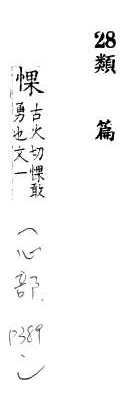 28
類篇
惈
古火切惈敢
勇也文一
(心部.
P389
)